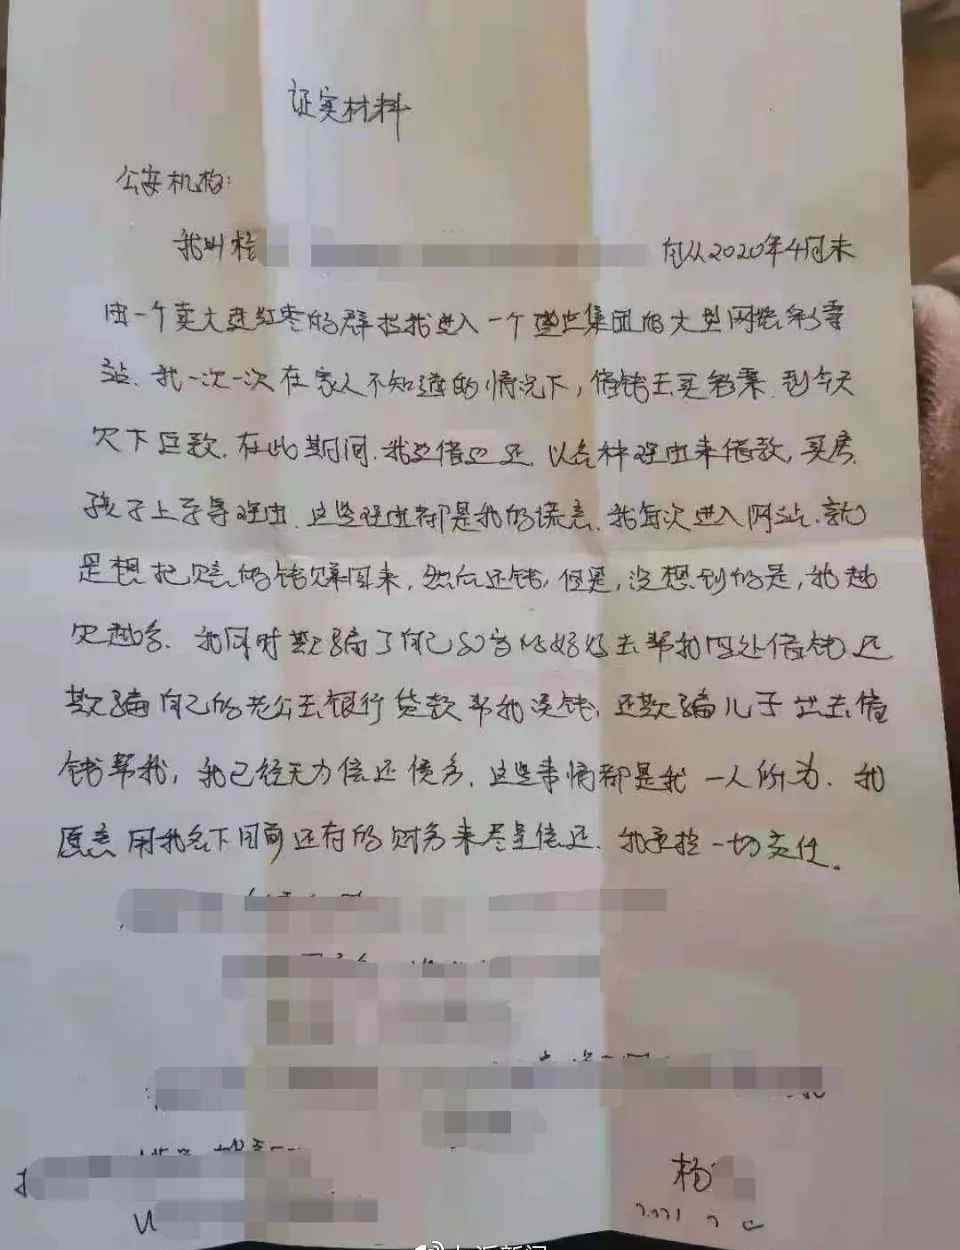 证实材料
公安机构:
我叫杨 自从2020年4月末
由一个卖大连红枣的群拉我进入一个 集团的大型网络彩票
站.我一次一次在家人不知道的情况下,借钱去买彩票.到今天
欠下巨款.在此期间.我边借边还.以各种理由来借款,买房.
孩子上学等理由.这些理由都是我的谎言.我每次进入网站.就
是想把 的钱赚回来,然后还钱,但是,没想到的是,我越
欠越多.我同时欺骗了自己80岁的妈妈去帮我四处借钱还
欺骗自己的老公去银行贷款帮我还钱,还欺骗儿子出去借
钱帮我,我已经无力偿还债务.这些事情都是我一人所为.我
愿意用我名下目前还存的财务来尽量偿还.我承担一切责任。
杨